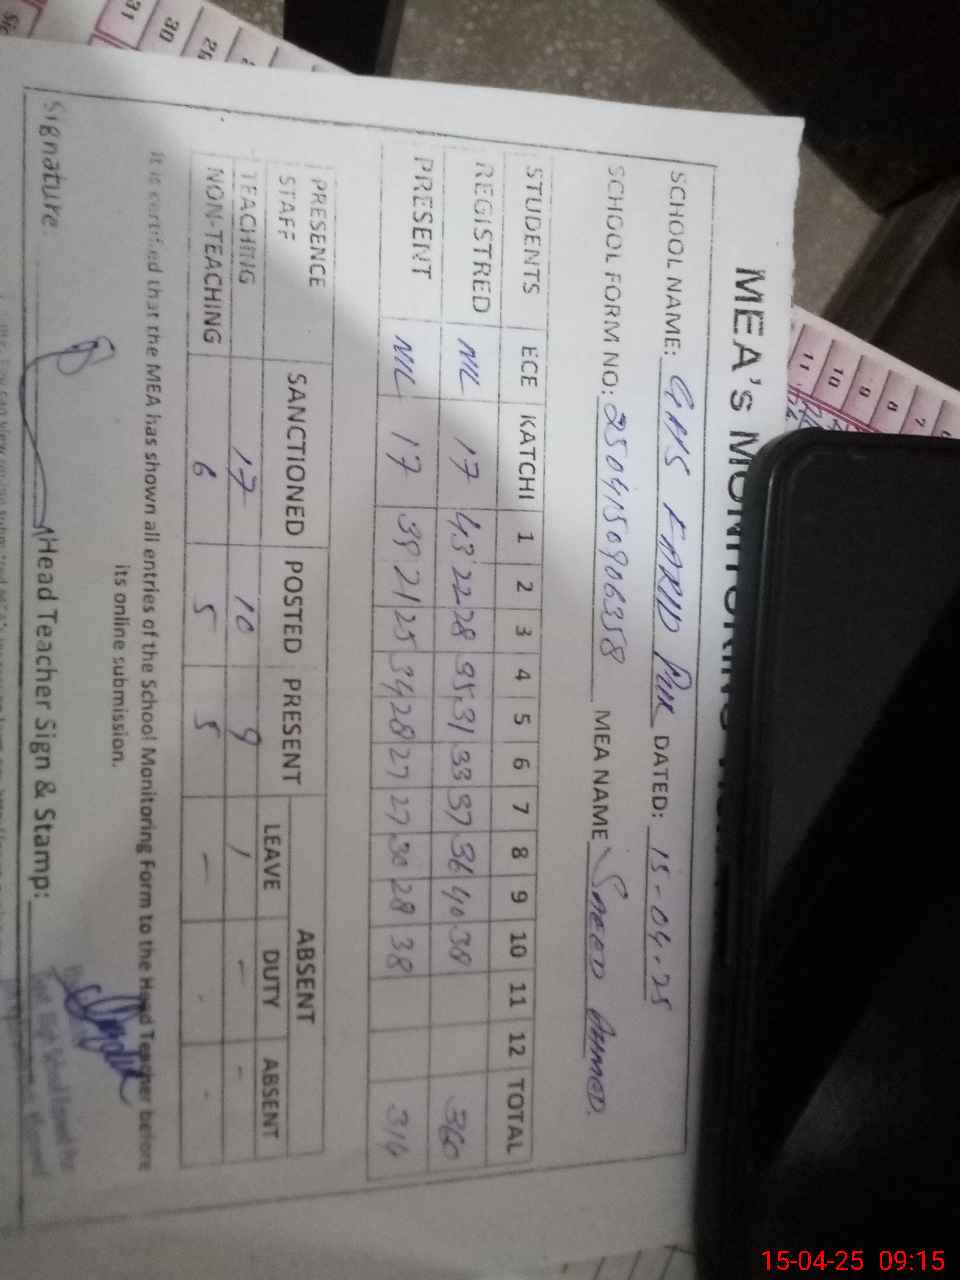 SCHOOL NAME: GHS FARID PUR DATED: 15-04-25
SCHOOL FORM NO: 2504150906358 MEA NAME SAEED AHMED.
STUDENTS ECE KATCHI 1 2 3 4 5 6 7 8 9 10 11 12 TOTAL
REGISTRED NIL 17 43 22 28 35 31 33 37 36 40 38 360
PRESENT NIL 17 39 21 25 34 28 27 27 30 28 38 314
PRESENCE STAFF SANCTIONED POSTED PRESENT ABSENT
LEAVE DUTY ABSENT
TEACHING 17 10 9 1 - -
NON-TEACHING 6 5 5 - - -
It is certified that the MEA has shown all entries of the School Monitoring Form to the Head Teacher before
its online submission.
Signature: Head Teacher Sign & Stamp:
31 30 29
11 10 9 8 7
15-04-25 09:15